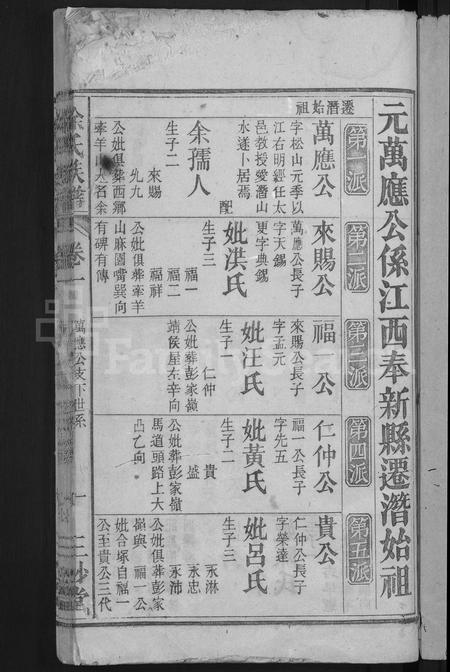 元萬應公係江西奉新縣遷潛始祖
遷潛始祖
第一派
萬應公
字松山元季以
江右明經任太
邑教授愛潛山
水遂卜居焉
配
余孺人
生子二
來賜
公妣俱葬西鄉
牽羊山大名余
第二派
來賜公
萬應公長子
字天錫
更字典錫
妣洪氏
生子三
福一
福二
福祥
公妣俱葬牽羊
山麻園嘴巽向
有碑有傳
第三派
福公
來賜公長子
字孟元
妣汪氏
生子一
仁仲
公妣葬彭家嶺
靖侯屋左辛向
第四派
仁仲公
福一公長子
字先五
妣黃氏
生子二
貴
盛
公妣葬彭家嶺
馬道頭路上大
凸乙向
第五派
貴公
仁仲公長子
字榮達
妣呂氏
生子三
永淋
永忠
永沛
公妣俱葬彭家
嶺與福一公
妣合塚自福一
公至貴公三代
余氏族譜
卷一
萬應公支下世系
一